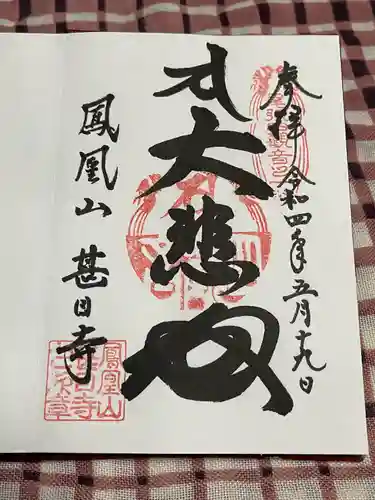 奉拝 令和四年五月十九日
大悲殿
鳳凰山 甚目寺
鳳凰山